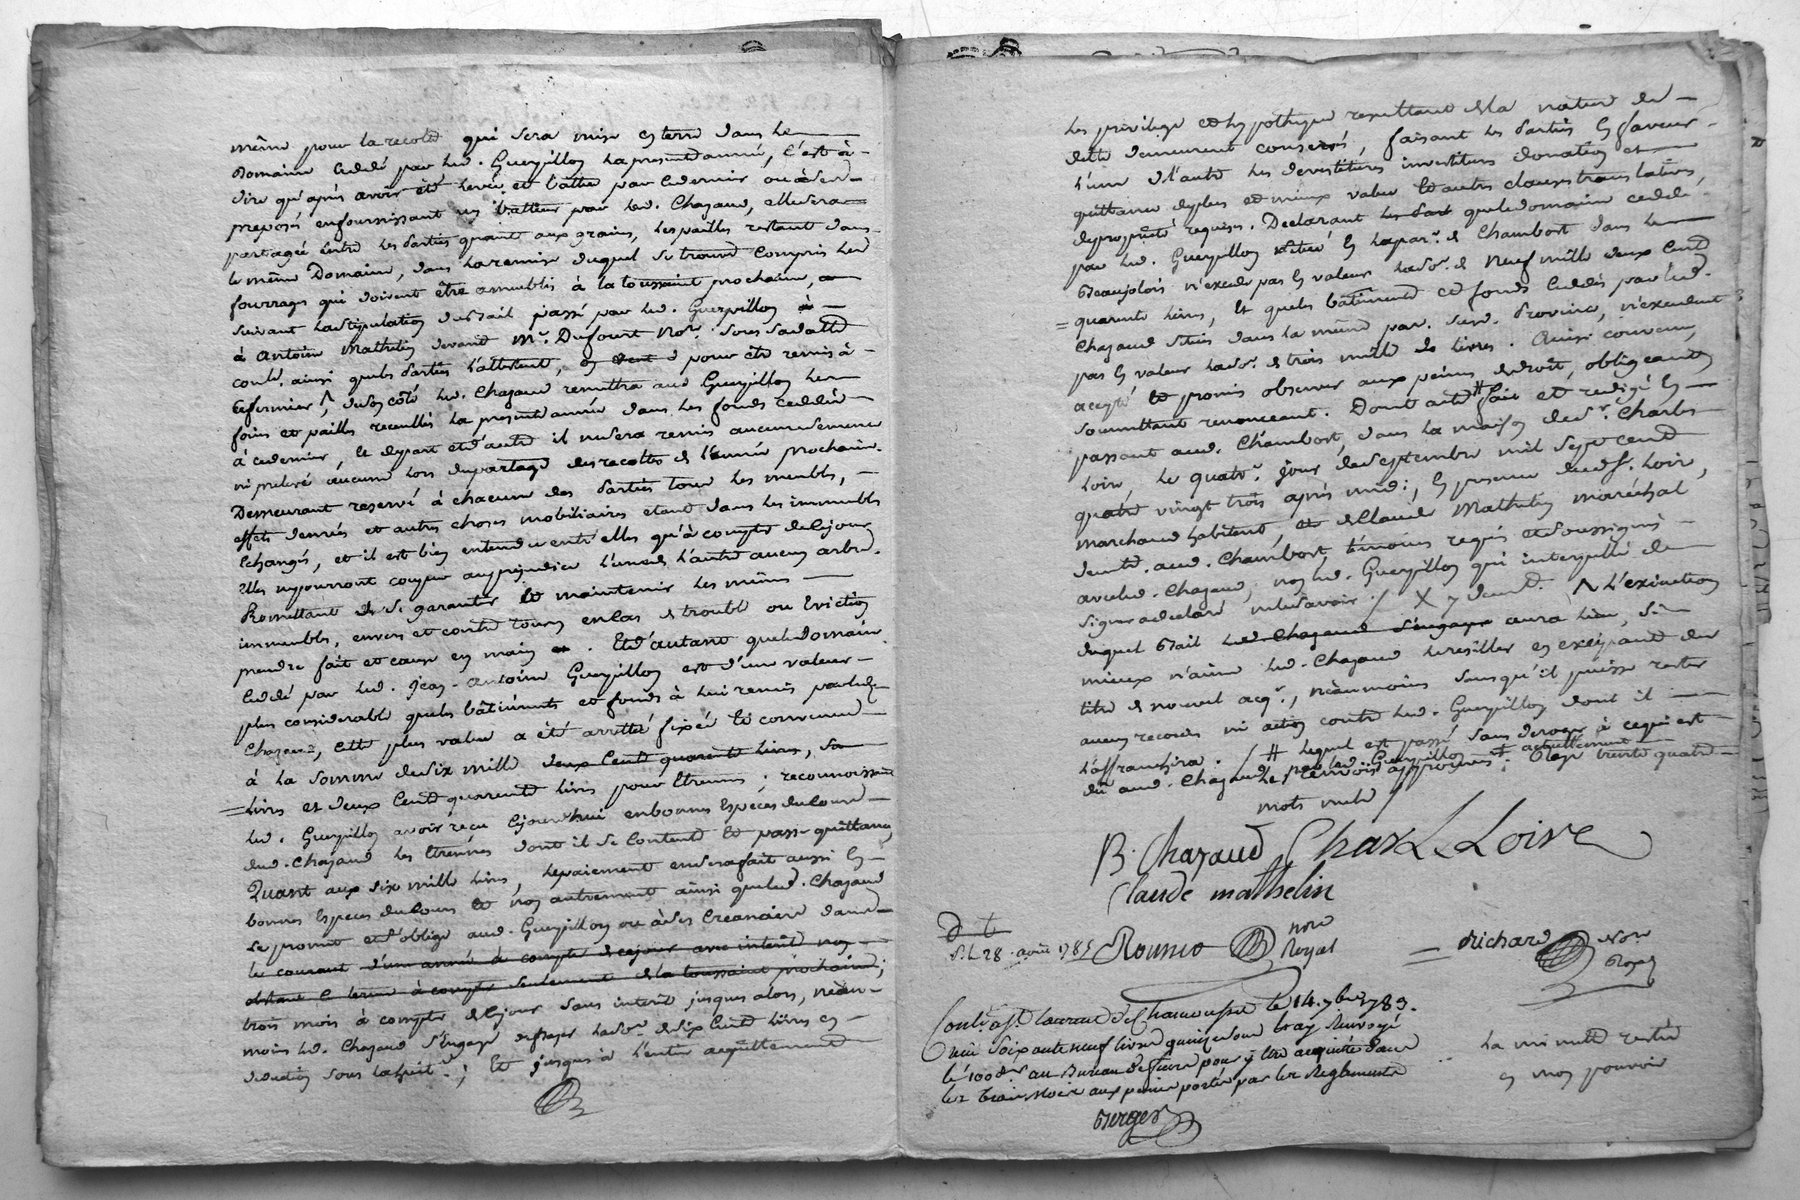 même pour la recolte qui sera mise en terre dans le
Domaine cedé par led. Guerpillon la presente année, c'est à-
dire qu'après avoir été levée et battue par ce dernier ou à ses
preposés en fournissant un batteur par led. Chazaud, elle sera
partagée entre les parties quant aux grains, les pailles restant dans
le même Domaine, dans la remise duquel se trouve compris les
fourrages qui doivent être ameublis à la toussaint prochaine,
suivant la stipulation du bail passé par led. Guerpillon à
à Antoine Mathelin devant Me. Dufourt Nore. sous sa datte
contd. ainsi que les parties l'attestent, pour être remis à
ce fermier /\, de son côté led. Chazaud remettra aud Guerpillon les
foins et pailles recueillis la presente année dans les fonds cedés
à ce dernier, et de part et d'autre il ne sera remis aucune semence
ni prelevé aucune lors du partage des recoltes de l'année prochaine.
Demeurant reservé à chacune des parties tous les meubles,
effets denrées et autres choses mobiliaires etant dans les immeubles
echangés, et il est bien entendu entr'elles qu'à compter de ce jour
elles ne pourront couper au prejudice l'une de l'autre aucun arbre.
Promettant de se garantir et maintenir les mêmes
immeubles, envers et contre tous en cas de trouble ou eviction
prendre fait et cause en main. Et d'autant que le domaine
cedé par led. Jean-Antoine Guerpillon est d'une valeur
plus considerable que les bâtiments et fonds à lui remis par led.
Chazaud, cette plus value a été arrêtée fixée et convenue
à la somme de six mille deux cent quarante livres, sa
livres et deux cent quarante livres pour etrennes; reconnoissant
led. Guerpillon avoir reçu ce jourd'hui en bonnes especes du cours
dud. Chazaud les etrennes dont il se contente et passe quittance,
Quant aux six mille livres, le paiement en sera fait aussi en
bonnes especes du cours et non autrement ainsi que led. Chazaud
le promet et s'oblige aud. Guerpillon ou à ses creanciers dans
le courant d'une année à compter de ce jour avec interêt non
obstant ce terme à compter seulement de la toussaint prochaine;
trois mois à compter de ce jour sans interêt jusques alors, néan-
moins led. Chazaud s'engage de payer la so.e de six cent livres en
deduction sous la huit.e; et jusques à l'entier acquittement
les privilege et hypotheque resultant de la nature de
dette demeurent conservés, faisant les parties en faveur
l'une de l'autre les devestitures investitures donation et
quittance de plus et mieux value et autres clauses translatives,
de proprieté requises. Declarant que le domaine cedé
par led. Guerpillon situé en la par.e de Chambost dans le
Beaujolois n'excede pas en valeur la so.e de neuf mille deux cent
quarante livres, et que les bâtiments et fonds cedés par led.
Chazaud situés dans la même par. sud. Province, n'excedent
pas en valeur la so.e de trois mille livres. Ainsi convenu,
accepté et promis observer aux peines de droit, obligeant
soumettant renonceant. Dont acte # fait et redigé en
passant aud. Chambost, dans la maison de sr. Charles
Loire, le quatre. jour de septembre mil sept cent
quatre vingt trois après midi; en presence dud. sr. Loire,
marchand habitant, et de Claude Mathelin maréchal
demt. aud. Chambost, témoins requis et soussignés
avec led. Chazaud; non led. Guerpillon qui interpellé de
signer a declaré ne le savoir / X y demt. /\ L'exécution
duquel Bail led Chazaud s'engage aura lieu, si
mieux n'aime led. Chazaud le resilier en excipant du
titre de nouvel acq.r, néanmoins sans qu'il puisse rester
aucun recours ni action contre led. Guerpillon dont il
l'affranchira. / # lequel est passé sans deroger à ce qui est
dû aud. Chazaud par led. Guerpillon # actuellement
Les renvois approuvés; Rayé trente quatre
mots nuls /
B. Chazaud Charl. Loire
Claude mathelin
D. t.
P. L. 28. août 1785 nore
Royal
Richard Nore
Royal
Contrôlé à St. Laurent de Chamousset le 14. 7bre 1783.
Reçu soixante neuf livres quinze sous renvoyé
le 100e. au Bureau de pour y être acquitté dans
les trois mois aux peines portées par les Reglements
Berger
La minutte restée
en mon pouvoir